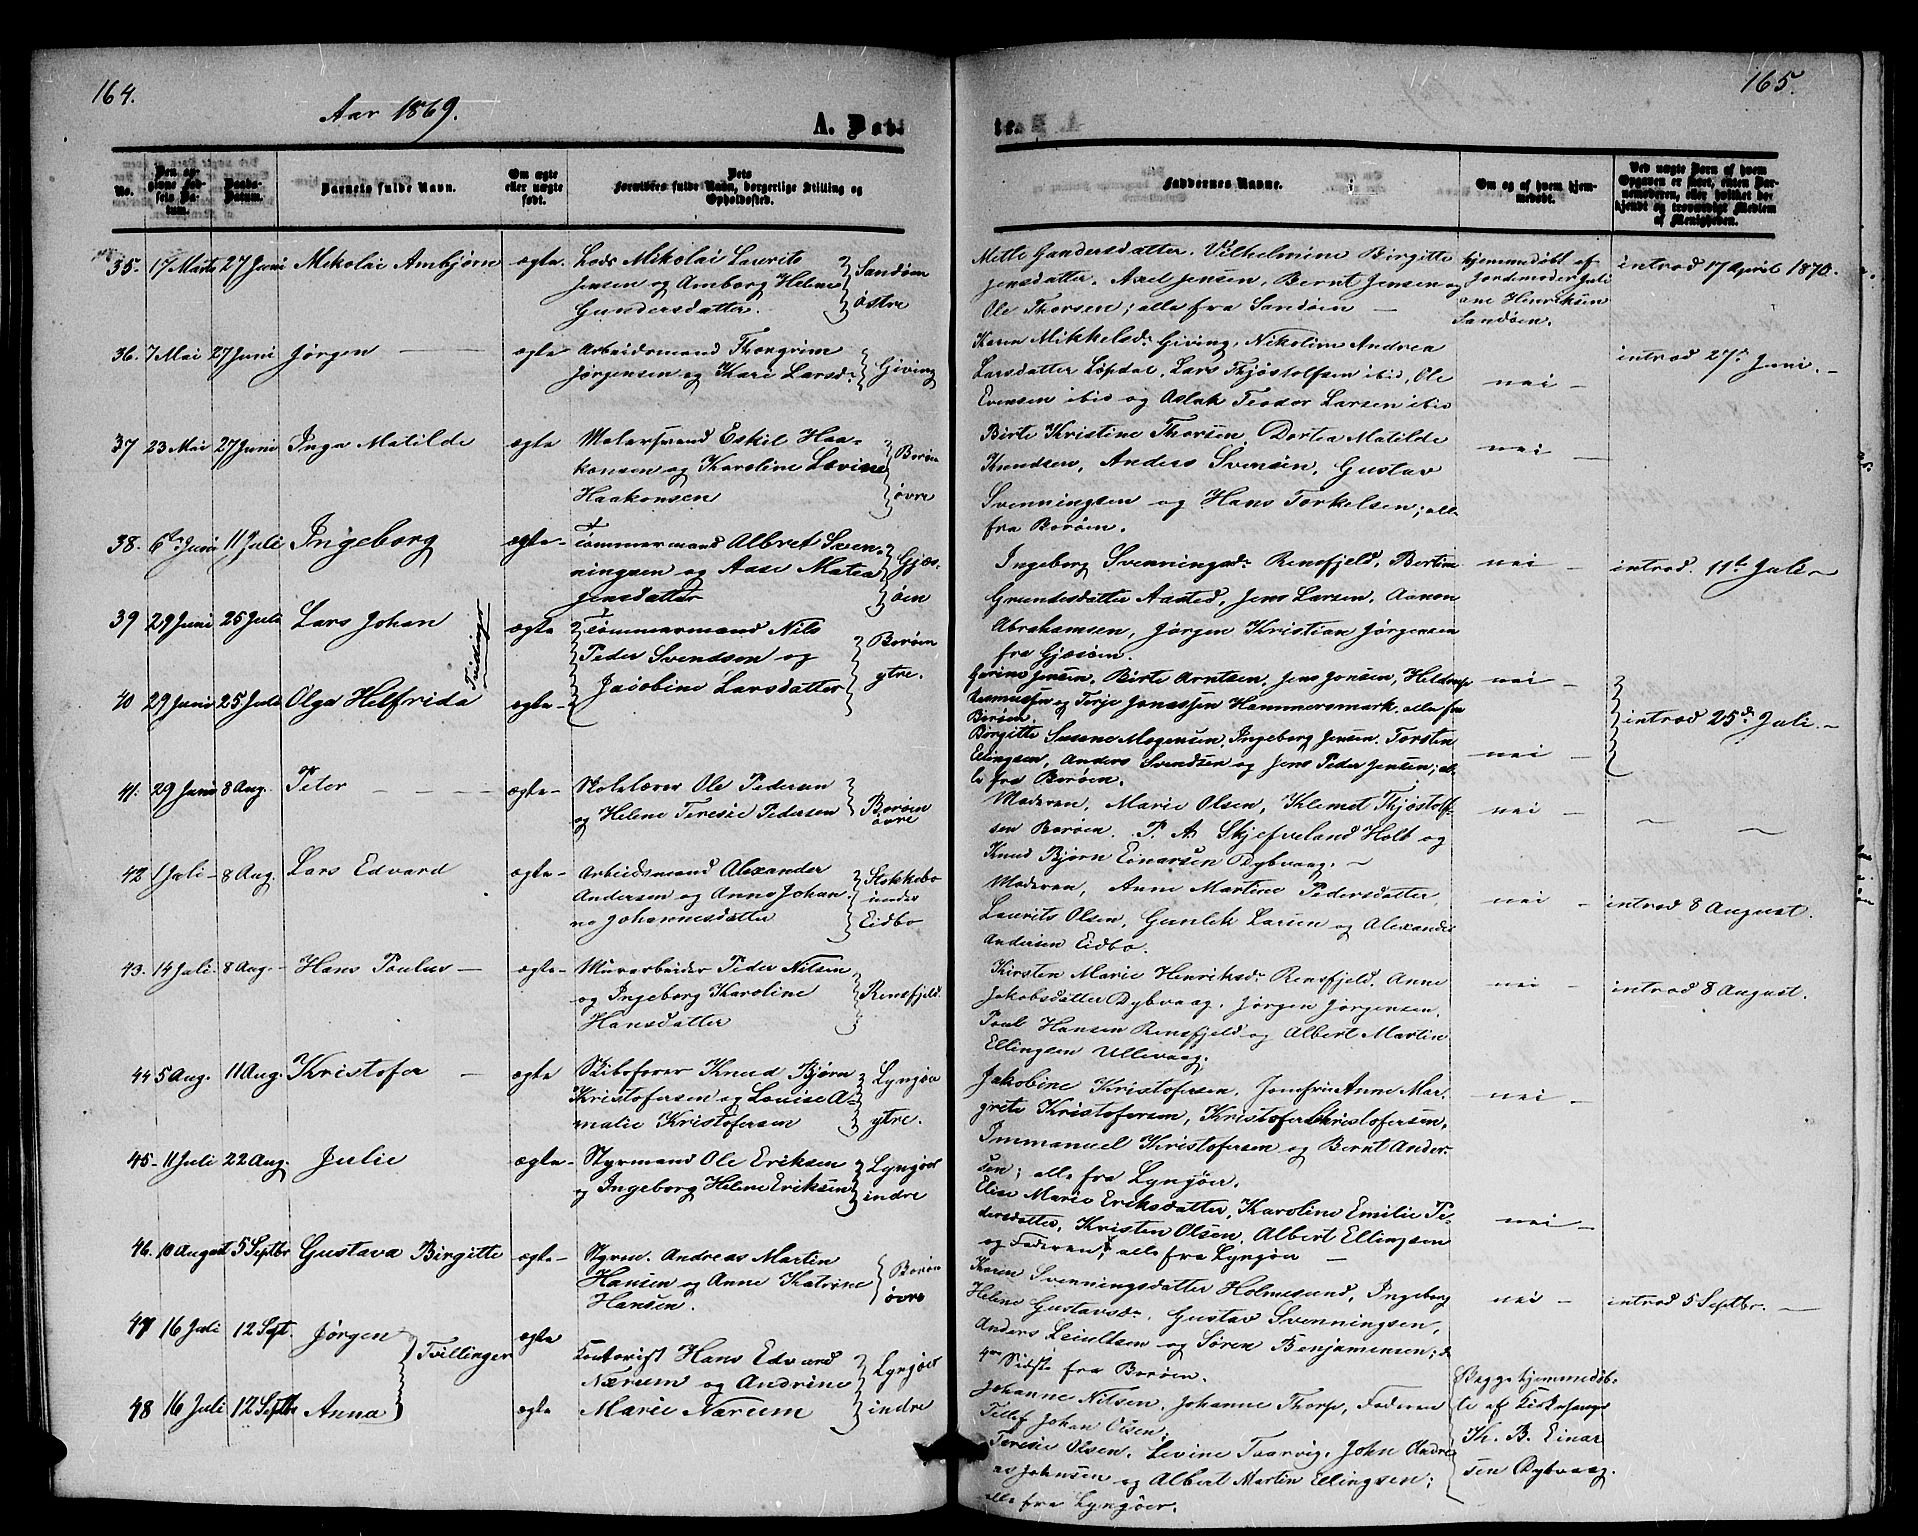 164.
Aar 1869.
A. Døbt
No.
Den opgivne Fødsels Datum.
Daabs-Datum.
Barnets fulde Navn.
Om ægte eller uægte født.
Forældres fulde Navn, borgerlige Stilling og Opholdssted.
35. 17 Marts 27 Juni Nikolai Ambjørn ægte. Lods Nikolai Laurits
Jensen og Amborg Helene
Gundersdatter.
Sandøen
østre
36. 7 Mai 27 Juni Jørgen ægte Arbeidsmand Thorgrim
Jørgensen og Kari Larsd.
Giving
37 23 Mai 27 Juni Inga Matilde ægte Matersmand Eskil Haa-
konsen og Karoline Lovine
Haakonsen
Borøen
øvre
38. 6te Juni 11 Juli Ingeborg ægte Tømmermand Albret Sven-
ningsen og Aase Matea
Jensdatter
Gjæs-
øen
39 29 Juni 25 Juli Lars Johan ægte Tømmermand Nils
Peder Svendsen og
Jacobine Larsdatter
Borøen
ytre.
Tvillinger
40 29 Juni 25 Juli Olga Helfrida ægte
41. 29 Juni 8 Aug. Peter ægte Skolelærer Ole Pedersen
og Helene Teresie Pedersen
Borøen
øvre
42 1 Juli 8 Aug. Lars Edvard ægte Arbeidsmand Alexander
Andersen og Anne Johan-
ne Johannesdatter
Stokkebo
under
Eidbo
43. 14 Juli 8 Aug. Hans Poulus ægte Murarbeider Peder Nilsen
og Ingeborg Karoline
Hansdatter
Rensfjeld.
44 5 Aug. 11 Aug. Kristofer ægte Skibsfører Knud Bjørn
Kristofersen og Lovise A-
malie Kristofersen
Lyngøer
ytre.
45 11 Juli 22 Aug. Julie ægte Styrmand Ole Eriksen
og Ingeborg Helene Eriksen
Lyngøer
indre
46. 10 August 5 Septbr Gustava Birgitte ægte Styrm. Andreas Martin
Hansen og Anne Katrine
Hansen.
Borøen
øvre
47 16 Juli 12 Sept. Jørgen ægte
Tvillinger
Kontorist Hans Edvard
Narum og Andrine
Marie Narum
Lyngøer
indre
48 16 Juli 12 Septbr Anna ægte
165.
Faddernes Navne.
Om og af hvem hjemmedøbt.
Ved uægte Børn af hvem Opgaven er skeet, enten Jordemoderen, eller hvilket bekjendt og troværdigt Medlem af Menigheden.
Mette Gundersdatter. Vilhelmine Birgitte
Jensdatter. Axel Jensen, Bernt Jensen og
Ole Thorsen; alle fra Sandøen
hjemmedøbt af
Jordemoder Juli
ane Henriksen
Sandøen.
introd 17 April 1870.
Karen Mikkelsd. Giving, Nikoline Andrea
Larsdatter Løpdal, Lars Thjøstolfsen ibid, Ole
Evensen ibid og Aslak Teodor Larsen ibid
nei
introd 27de Juni.
Birte Kristine Thorsen, Dortea Matilde
Knudsen, Anders Svensen, Gustav
Svenningsen og Hans Torkelsen; alle
fra Borøen.
nei
Ingeborg Svenningsd. Rensfjeld, Bertine
Grundesdatter Aasted, Jens Larsen, Aanon
Abrahamsen, Jørgen Kristian Jørgensen
fra Gjæsøen.
nei
introd. 11te Juli
Jens Jonsen,
Rasmussen og Terje Jonassen Hammersmark, alle fra
Borøen.
nei
Birgitte Susanne Mogensen, Ingeborg Jensen. Torsten
Ellingsen, Anders Svendsen og Jens Peder Jensen; al-
le fra Borøen.
nei
introd 25de Juli
Moderen, Marie Olsen, Klemet Thjøstolf-
sen Borøen. P. A. Skjefveland Holt og
Knud Bjørn Einarsen Dybvaag.
nei
Moderen, Anne Martine Pedersdatter,
Laurits Olsen, Gunlek Larsen og Alexander
Andersen Eidbo.
nei
introd 8 August.
Kirsten Marie Henriksd. Rensfjeld, Anne
Jakobsdatter Dybvaag, Jørgen Jørgensen,
Poul Hansen Rensfjeld og Albert Martin
Ellingsen Ullevaag.
nei
introd 8 August.
Jakobine Kristofersen, Jomfru Anne Mar-
grete Kristofersen, Kristofer Kristofersen,
Immanuel Kristofersen og Bernt Ander-
sen; alle fra Lyngøer.
nei
Elise Marie Eriksdatter, Karoline Emilie Pe-
dersdatter, Kristen Olsen, Albert Ellingsen
og Faderen, alle fra Lyngøer
nei
Karen Svenningsdatter Holmesund, Ingeborg
Helene Gustavsd., Gustav Svenningsen,
Anders Leiulfsen og Søren Benjaminsen; de
4re Sidste fra Borøen.
nei
introd 5 Septbr.
Johanne Nilsen, Johanne Thorp, Faderen
Tellef Johan Olsen;
Teresie Olsen, Levine Taarvig, John Andre-
as Johnsen og Albert Martin Ellingsen;
alle fra Lyngøer.
Begge hjemmedøb-
te af Kirkesanger
Kn. B. Einar
sen Dybvaag.